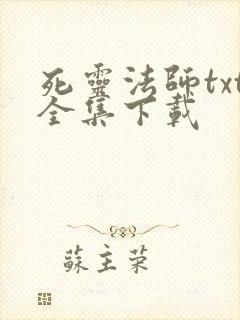 死靈法師txt
全集下載
蘇主荣